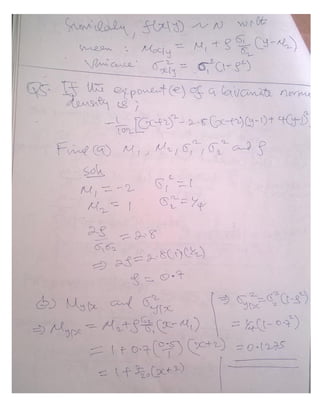 Similarly, f(x/y) ~ N with
mean : Mx/y = M1 + ρ σ1/σ2 (y-M2)
Variance σ²x/y = σ1²(1-ρ²)
Q5. If the exponent (e) of a bivariate normal
density is ;
-1/102 [(x+2)² - 2.8(x+2)(y-1) + 4(y-1)²]
Find (a) M1, M2, σ1², σ2² and ρ
Soln
M1 = -2 σ1² = 1
M2 = 1 σ2² = 1/4
2ρ/σ1σ2 = 2.8
⇒ 2ρ = 2.8(1)(1/2)
ρ = 0.7
(b) My/x and σ²y/x
⇒ My/x = M2 + ρ σ2/σ1 (x-M1)
= 1 + 0.7 (0.5/1) (x+2)
= 1 + 7/20 (x+2)
⇒ σ²y/x = σ2²(1-ρ²)
= 1/4(1-0.7²)
= 0.1275